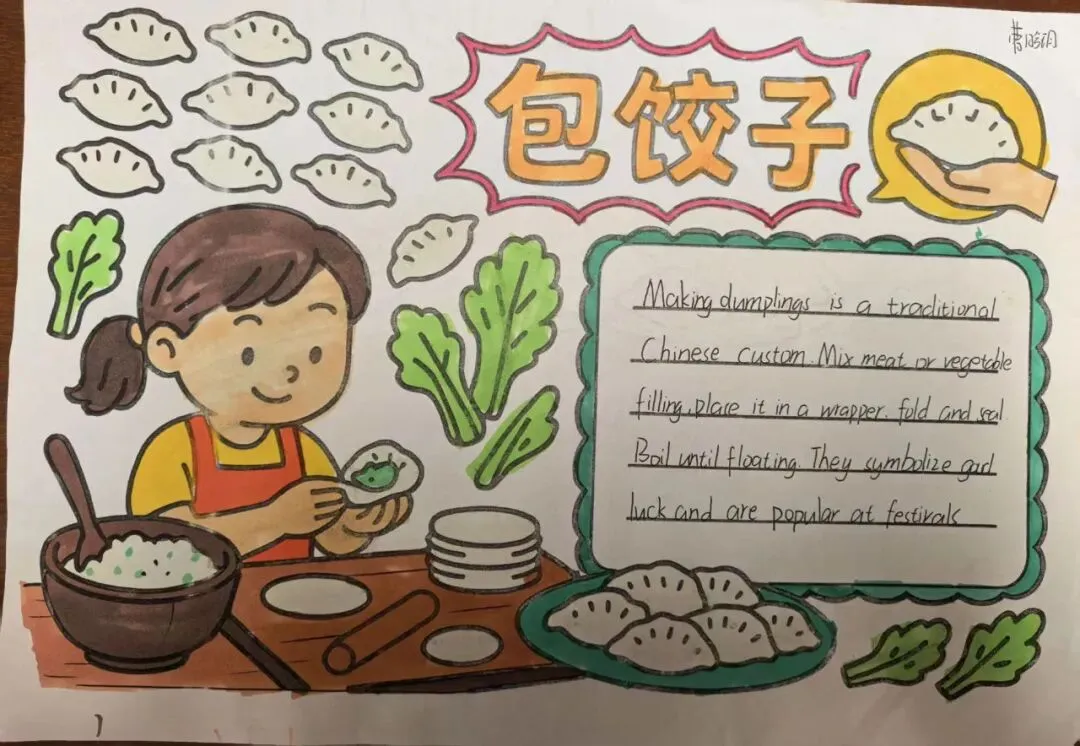 包饺子
Making dumplings is a traditional
Chinese custom. Mix meat or vegetable
filling, place it in a wrapper. fold and seal
Boil until floating. They symbolize good
luck and are popular at festivals